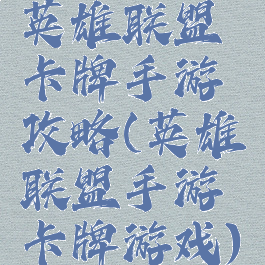 英雄联盟
卡牌手游
攻略(英雄
联盟手游
卡牌游戏)